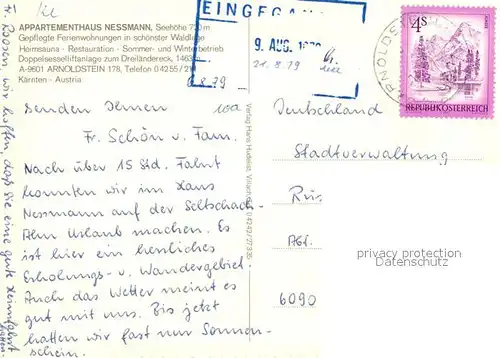 APPARTEMENTHAUS NESSMANN, Seehöhe 720 m
Gepflegte Ferienwohnungen in schönster Waldlage
Heimsauna - Restauration - Sommer- und Winterbetrieb
Doppelsesselliftanlage zum Dreiländereck, 1463 m
A-9601 ARNOLDSTEIN 178, Telefon 0 42 55 / 21
Kärnten - Austria
6.8.79
Senden Ihnen
Fr. Schön u. Fam.
Nach über 15 Std. Fahrt
konnten wir im Haus
Nessmann auf der Seltschach-
Alm Urlaub machen. Es
ist hier ein herrliches
Erholungs- u. Wandergebiet.
Auch das Wetter meint es
gut mit uns. Bis jetzt
hatten wir fast nur Sonnen-
schein.
wir hoffen, daß Sie eine gute Heimfahrt
hatten.
Verlag Hans
EINGEGAN
9. AUG.
21.8.79
ARNOLDSTEIN
4S
REPUBLIK ÖSTERREICH
Deutschland
Stadtverwaltung
Rüs
Abt.
6090
privacy protection
watermark